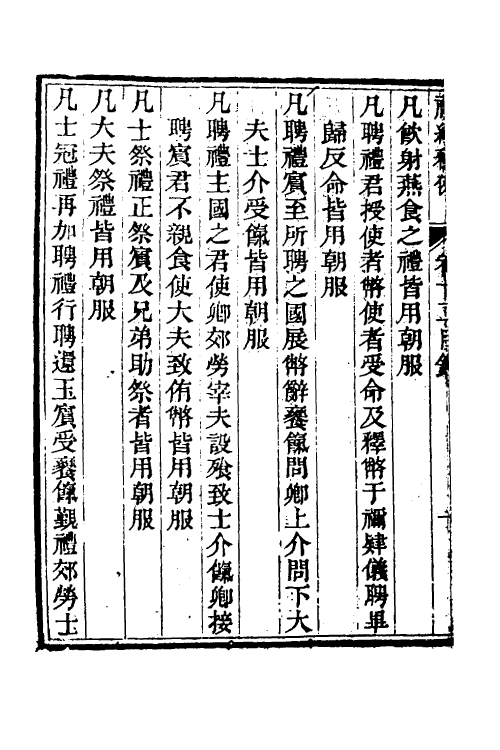 凡飲射燕食之禮皆用朝服
凡聘禮君授使者幣使者受命及釋幣于禰肄儀聘畢
歸反命皆用朝服
凡聘禮賓至所聘之國展幣辭饔餼問卿上介問下大
夫士介受餼皆用朝服
凡聘禮主國之君使卿郊勞宰夫設飧致士介餼卿接
聘賓君不親食使大夫致侑幣皆用朝服
凡士祭禮正祭賓及兄弟助祭者皆用朝服
凡大夫祭禮皆用朝服
凡士冠禮再加聘禮行聘還玉賓受饔餼覲禮郊勞士